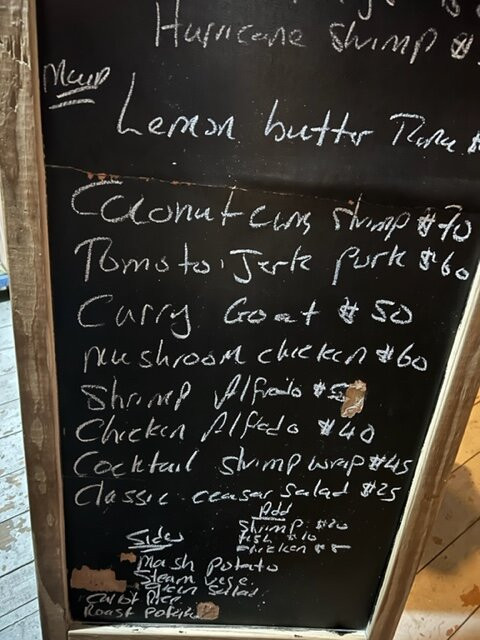 Hurricane shrimp $
Main
Lemon butter Tuna $
Coconut curry shrimp $70
Tomato Jerk Pork $60
Curry Goat $50
Mushroom chicken $60
Shrimp Alfredo $5
Chicken Alfredo $40
Cocktail shrimp wrap $45
Classic ceaser salad $25
Add
Shrimp $20
Fish $10
chicken $5
Sides
Mash potato
Steam vege.
Salad
Rice
Roast potato